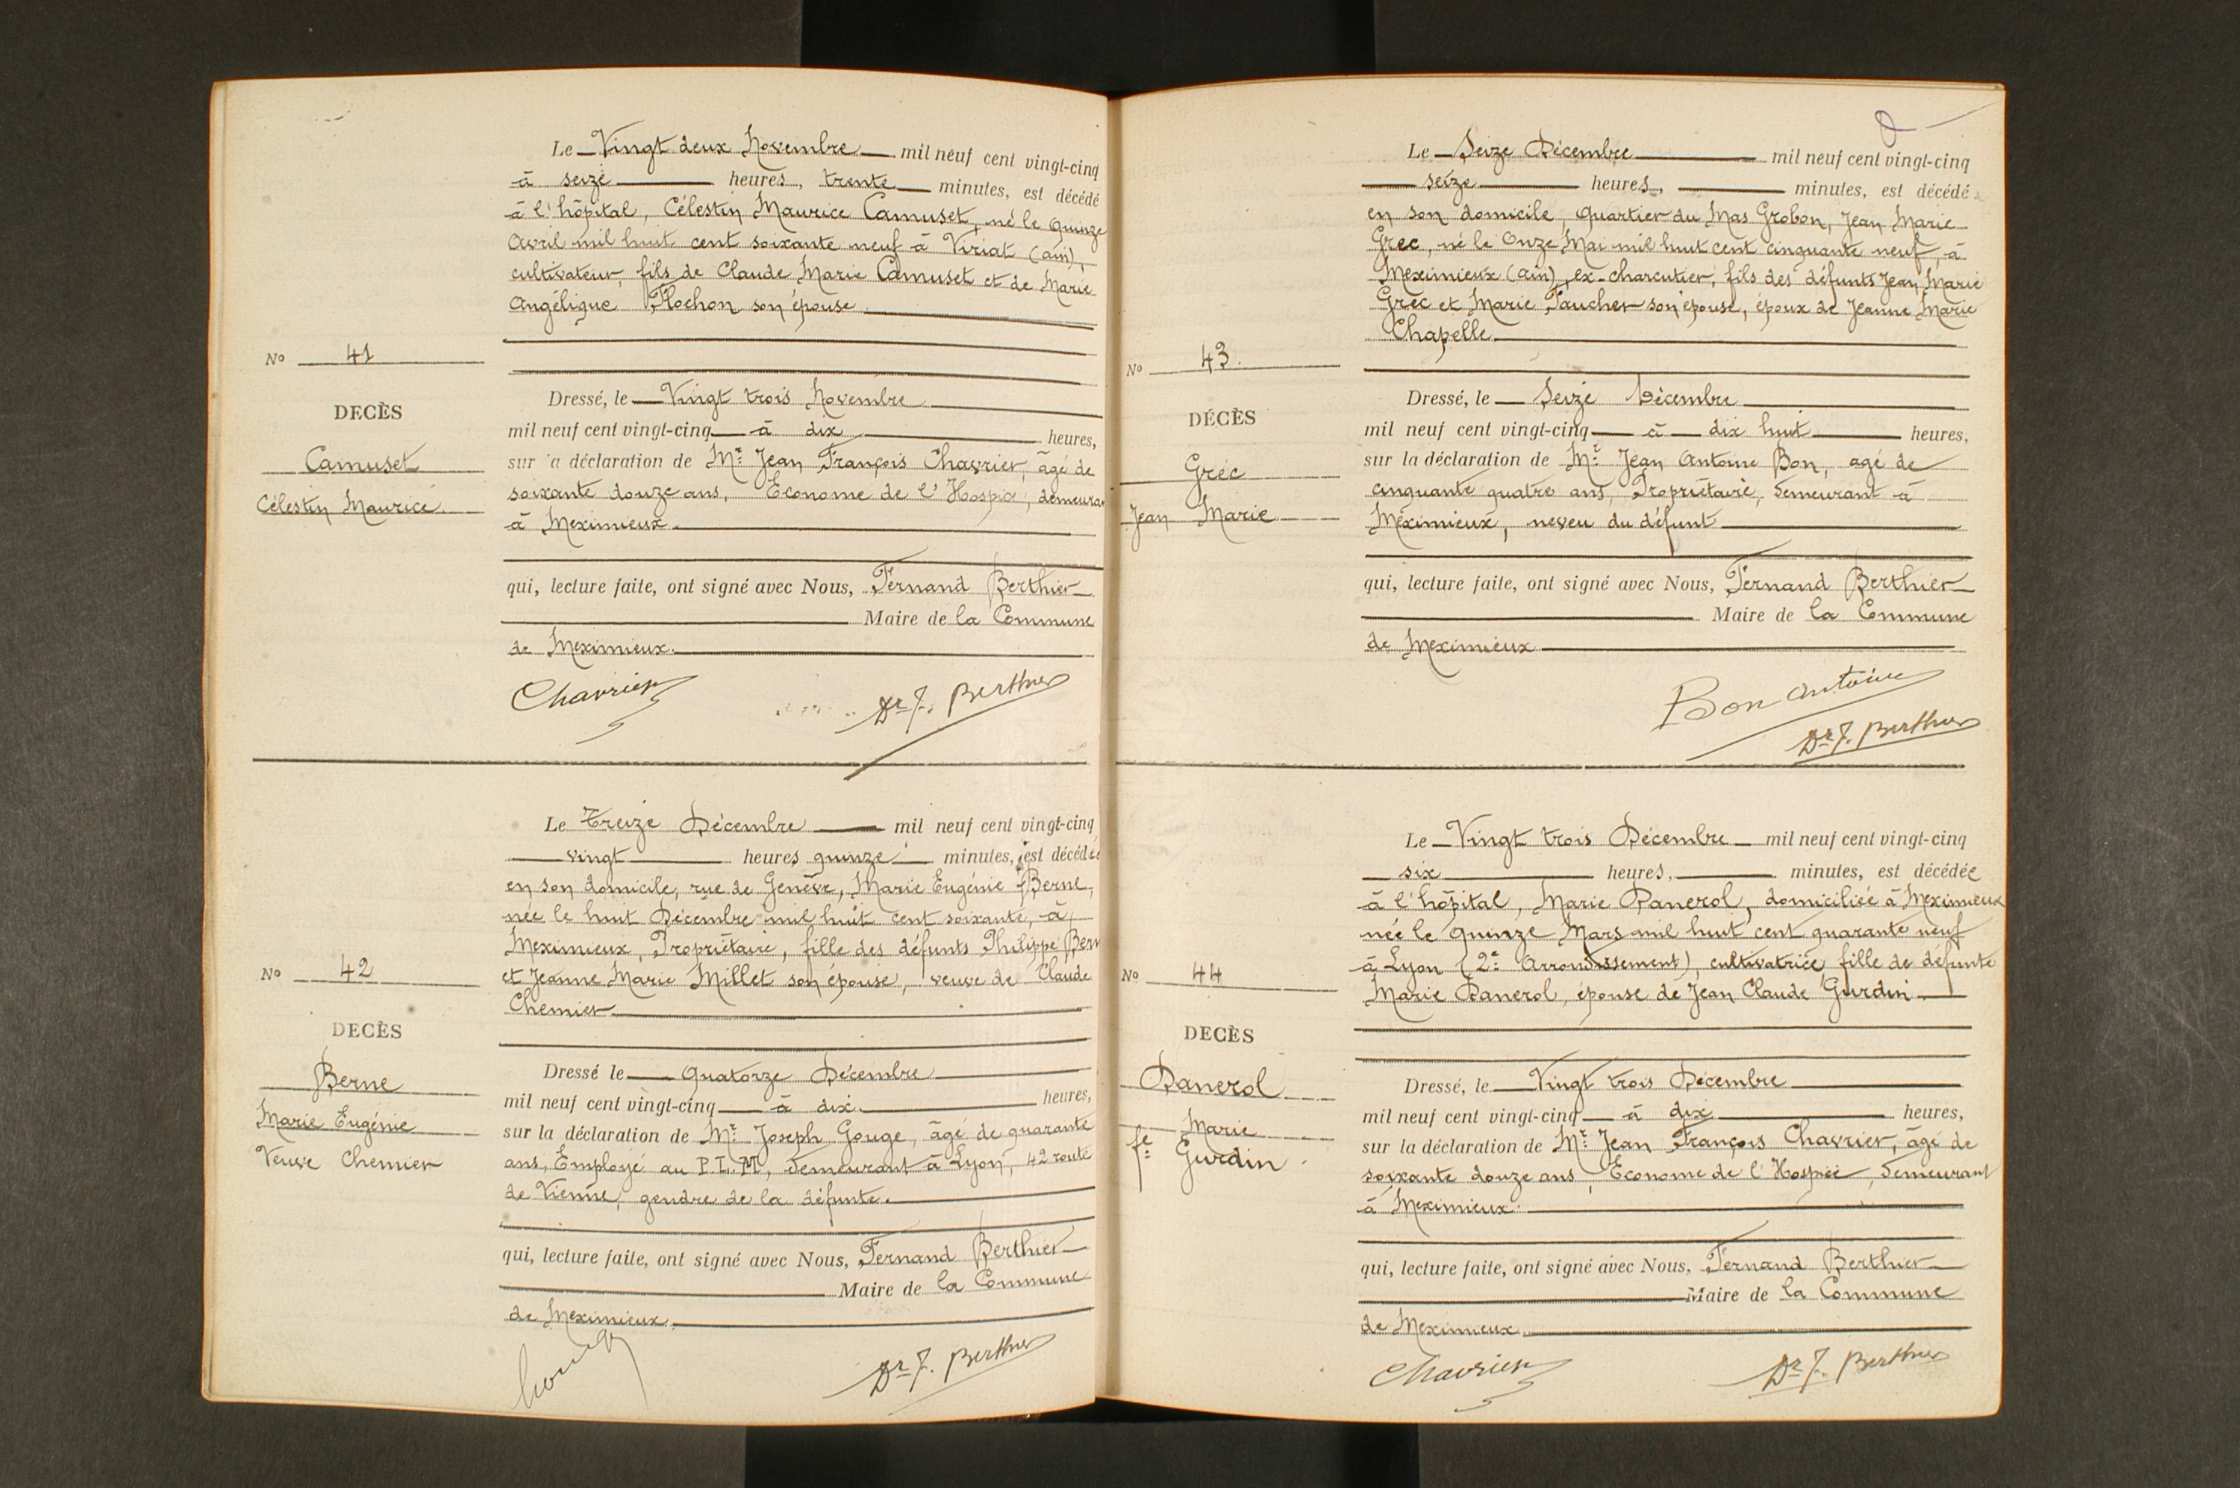 Le Vingt deux Novembre mil neuf cent vingt-cinq
à seize heures, trente minutes, est décédé
à l'hôpital, Célestin Maurice Camuset, né le quinze
Avril mil huit cent soixante neuf à Viriat (ain),
cultivateur, fils de Claude Marie Camuset et de Marie
Angélique Flochon son épouse
No 41
DECÈS
Camuset
Célestin Maurice
Dressé, le Vingt trois Novembre
mil neuf cent vingt-cinq à dix heures,
sur la déclaration de Mr Jean François Chavrier, âgé de
soixante douze ans, Econome de l'Hospice, demeurant
à Meximieux
qui, lecture faite, ont signé avec Nous, Fernand Berthier
Maire de la Commune
de Meximieux.
Chavrier Dr F. Berthier
Le treize Décembre mil neuf cent vingt-cinq
vingt heures quinze minutes, est décédée
en son domicile, rue de Genève, Marie Eugénie Berne,
née le huit Décembre mil huit cent soixante, à
Meximieux, Propriétaire, fille des défunts Philippe Berne
et Jeanne Marie Millet son épouse, veuve de Claude
Chemier
No 42
DECÈS
Berne
Marie Eugénie
Veuve Chemier
Dressé le quatorze Décembre
mil neuf cent vingt-cinq à dix heures,
sur la déclaration de Mr Joseph Gouge, âgé de quarante
ans, Employé au P.L.M, demeurant à Lyon, 42 route
de Vienne, gendre de la défunte.
qui, lecture faite, ont signé avec Nous, Fernand Berthier
Maire de la Commune
de Meximieux.
Dr F. Berthier
Le Seize Décembre mil neuf cent vingt-cinq
seize heures, minutes, est décédé
en son domicile, quartier du Mas Grobon, Jean Marie
Grec, né le Onze Mai mil huit cent cinquante neuf, à
Meximieux (ain), ex-charcutier, fils des défunts Jean Marie
Grec et Marie Faucher son épouse, époux de Jeanne Marie
Chapelle
No 43.
DÉCÈS
Gréc
Jean Marie
Dressé, le Seize Décembre
mil neuf cent vingt-cinq à dix huit heures,
sur la déclaration de Mr Jean Antoine Bon, agé de
cinquante quatre ans, Propriétaire, demeurant à
Méximieux, neveu du défunt
qui, lecture faite, ont signé avec Nous, Fernand Berthier
Maire de la Commune
de Meximieux
Bon Antoine
Dr F. Berthier
Le Vingt trois Décembre mil neuf cent vingt-cinq
six heures, minutes, est décédée
à l'hôpital, Marie Danerol, domiciliée à Meximieux
née le quinze Mars mil huit cent quarante neuf
à Lyon (2e Arrondissement), cultivatrice, fille de défunte
Marie Danerol, épouse de Jean Claude Gurdin.
No 44
DECÈS
Danerol
Marie
fe Gurdin.
Dressé, le Vingt trois Décembre
mil neuf cent vingt-cinq à dix heures,
sur la déclaration de Mr Jean François Chavrier, âgé de
soixante douze ans, Econome de l'Hospice, demeurant
à Meximieux.
qui, lecture faite, ont signé avec Nous, Fernand Berthier
Maire de la Commune
de Meximieux
Chavrier Dr F. Berthier